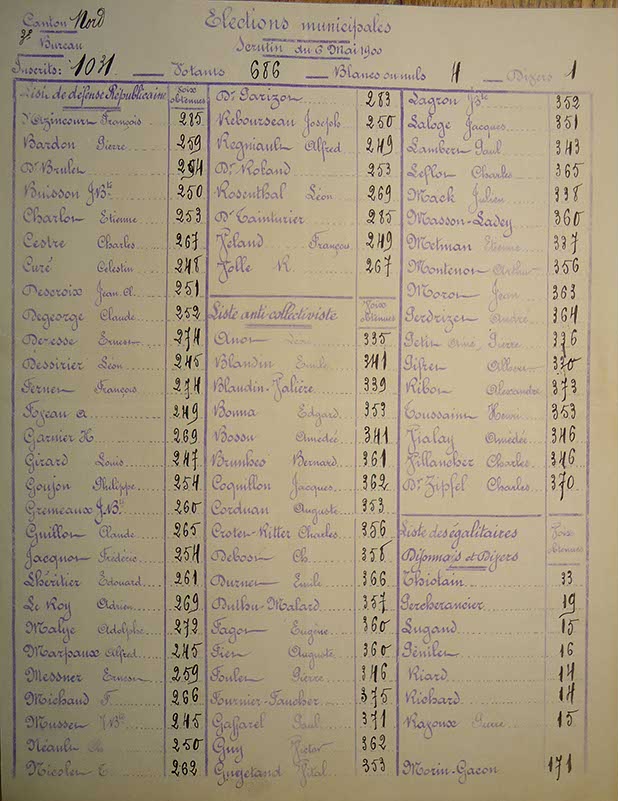 Canton Nord
3e Bureau
Elections municipales
Scrutin du 6 Mai 1900
Inscrits: 1031 Votants 686 Blancs ou nuls 4 Divers 1
Liste de défense Républicaine Voix obtenues
François 285
Bardon Pierre 259
Dr Brulet 254
Buisson J.Bte 250
Charlot Etienne 253
Cestre Charles 267
Curé Celestin 248
Descroix Jean A. 251
Degeorge Claude 252
Deresse Ernest 274
Dessirier Léon 245
Fernet François 274
Foyeau A 249
Garnier H. 269
Girard Louis 247
Goujon Philippe 254
Gremeaux J.Bte 260
Guillot Claude 265
Jacquot Frédéric 254
Lhéritier Edouard 261
Le Roy Adrien 269
Malye Adolphe 272
Marpaux Alfred 245
Messner Ernest 259
Michaud F. 266
Musset J.Bte 245
Néault 250
Nicolet E. 262
Dr Garizot 283
Rebourseau Joseph 250
Regniault Alfred 249
Dr Roland 253
Rosenthal Léon 269
Dr Tainturier 285
Veland François 249
Jolle R. 267
Liste anti-collectiviste Voix obtenues
Anot 335
Blandin Emile 341
Blandin-Valière 339
Bonna Edgard 353
Bossu Amédée 341
Brunhes Bernard 361
Coquillot Jacques 362
Corduan Auguste 353
Crotet-Ritter Charles 356
Debost Ch. 358
Durnet Emile 366
Duthu-Malard 357
Fagot Eugène 360
Fiet Auguste 360
Foulet Pierre 346
Fournier-Faucher 375
Gaffarel Paul 371
Guy Victor 362
Gugetand Vital 353
Lagrot J.Bte 352
Laloge Jacques 351
Lambert Paul 343
Leflot Charles 365
Mack Julien 338
Masson-Ladey 360
Metman Etienne 337
Montenot Arthur 356
Morot Jean 363
Perdrizet André 364
Petit Pierre 336
330
Ribot Alexandre 373
Toussaint Henri 353
Vialay Amédée 346
Villancher Charles 346
Dr Zipfel Charles 370
Liste des égalitaires Voix obtenues
Dijonnais et Divers
Thiolain 33
Percherancier 19
Lugand 15
Génilet 16
Riard 14
Richard 14
Razoux Pierre 15
Morin-Gacon 171